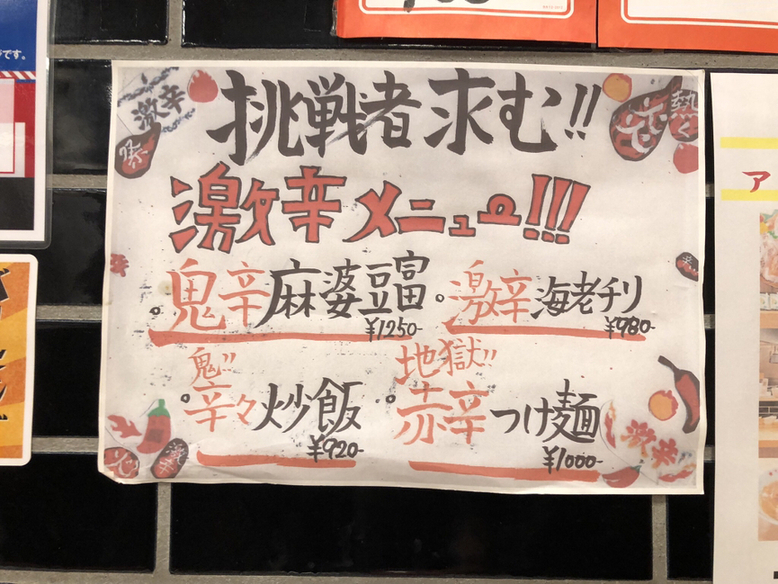 挑戦者求む!!
激辛メニュー!!!
鬼辛麻婆豆富
¥1250-
激辛海老チリ
¥980-
鬼!!
辛々炒飯
¥920-
地獄!!
赤辛つけ麺
¥1000-
激辛
祭
熱く
激辛
です。
ア